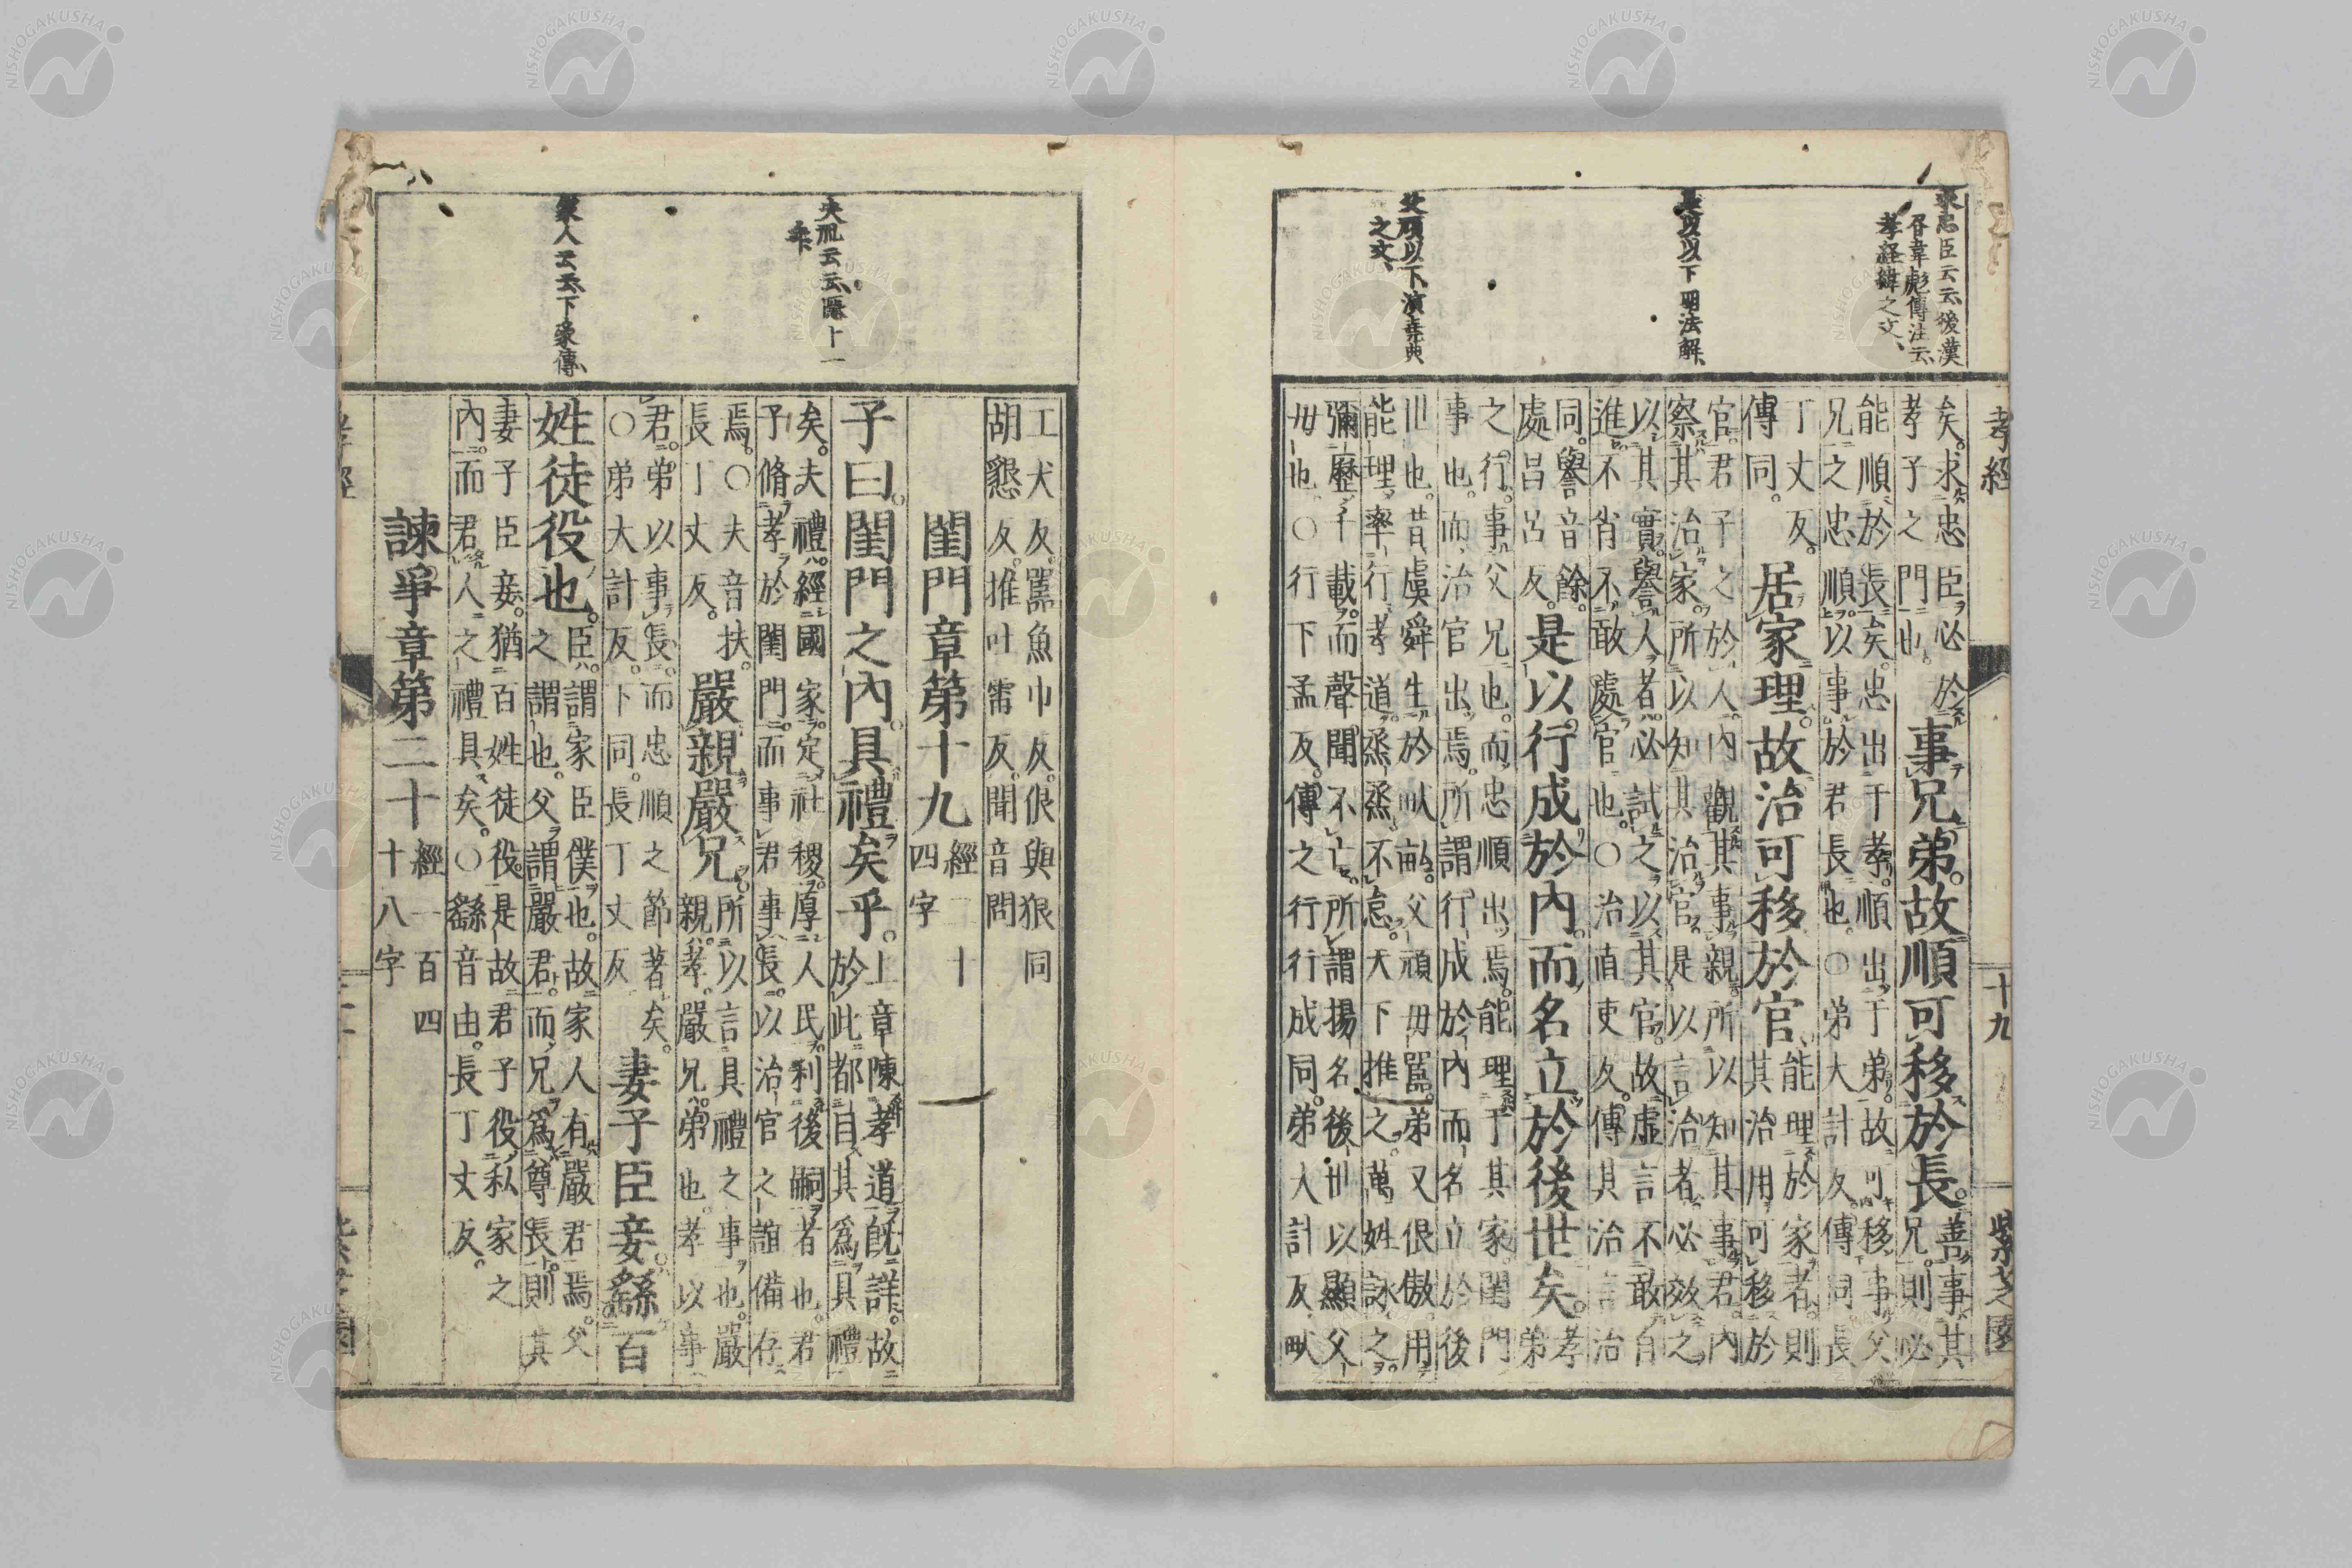 孝經 十九 紫芝園
求忠臣云云後漢
各韋彪傳注云
孝経緯之文
是以以下明法解
父頑以下演堯典
之文
矣求忠臣必於
孝子之門也
事兄弟故順可移於長
善事其
兄則必
能順於長矣忠出于孝順出于弟故可移事父
兄之忠順以事於君長也○弟大計反傳同長
丁丈反
傳同
居家理故治可移於官
能理於家者則
其治用可移於
官君子之於人内觀其事親所以知其事君内
察其治家所以知其治官是以言治者必效之
以其實譽人者必試之以其官故虚言不敢自
進不肖不敢處官也○治直吏反傳其治言治
同譽音餘
處呂呂反
是以行成於内而名立於後世矣
孝
弟
之行事父兄也而忠順出焉能理于其家閨門
事也而治官出焉所謂行成於内而名立於後
丗也昔虞舜生於畎畝父頑毋嚚弟又很傲用
能理率行孝道烝烝不怠天下推之萬姓詠之
彌歷千載而聲聞不亡所謂揚名後丗以顯父
毋也○行下孟反傳之行行成同弟人計反畎
夫礼云云隱十一
年
家人云云下彖傳
工犬反嚚魚巾反很與狠同
胡懇反推叶雷反聞音問
閨門章第十九
經二十
四字
子曰閨門之内具禮矣乎
上章陳孝道既詳故
於此都目其爲具禮
矣夫禮經國家定社稷厚人民利後嗣者也君
子脩孝於閨門而事君事長以治官之誼備存
焉○夫音扶
長丁丈反
嚴親嚴兄
所以言具禮之事也嚴
親孝嚴兄弟也孝以事
君弟以事長而忠順之節著矣
○弟大計反下同長丁丈反
妻子臣妾繇百
姓徒役也
臣謂家臣僕也故家人有嚴君焉父
之謂也父謂嚴君而兄爲尊長則其
妻子臣妾猶百姓徒役是故君子役私家之
内而君人之禮具矣○繇音由長丁丈反
諫爭章第二十
經一百四
十八字
孝經